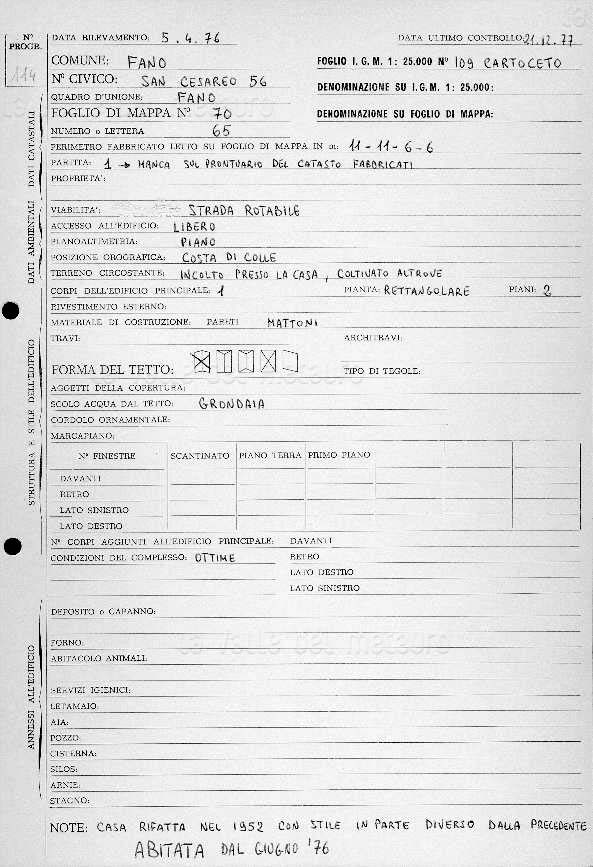 Nº PROGR. 114
DATA BILEVAMENTO: 5.4.76 DATA ULTIMO CONTROLLO: 21.12.77
COMUNE: FANO FOGLIO I. G. M. 1: 25.000 Nº 109 CARTOCETO
Nº CIVICO: SAN CESAREO 56 DENOMINAZIONE SU I. G. M. 1: 25.000:
QUADRO D'UNIONE: FANO
FOGLIO DI MAPPA Nº 70 DENOMINAZIONE SU FOGLIO DI MAPPA:
NUMERO o LETTERA 65
PERIMETRO FABBRICATO LETTO SU FOGLIO DI MAPPA IN m: 11-11-6-6
PARTITA: 1 → MANCA SUL PRONTUARIO DEL CATASTO FABBRICATI
PROPRIETA':
DATI CATASTALI
VIABILITA': STRADA ROTABILE
ACCESSO ALL'EDIFICIO: LIBERO
PLANOALTIMETRIA: PIANO
POSIZIONE OROGRAFICA: COSTA DI COLLE
TERRENO CIRCOSTANTE: INCOLTO PRESSO LA CASA, COLTIVATO ALTROVE
DATI AMBIENTALI
CORPI DELL'EDIFICIO PRINCIPALE: 1 PIANTA: RETTANGOLARE PIANI: 2
RIVESTIMENTO ESTERNO:
MATERIALE DI COSTRUZIONE: PARETI MATTONI
TRAVI: ARCHITRAVI:
FORMA DEL TETTO: TIPO DI TEGOLE:
AGGETTI DELLA COPERTURA:
SCOLO ACQUA DAL TETTO: GRONDAIA
CORDOLO ORNAMENTALE:
MARCAPIANO:
Nº FINESTRE SCANTINATO PIANO TERRA PRIMO PIANO
DAVANTI
RETRO
LATO SINISTRO
LATO DESTRO
Nº CORPI AGGIUNTI ALL'EDIFICIO PRINCIPALE: DAVANTI
CONDIZIONI DEL COMPLESSO: OTTIME RETRO
LATO DESTRO
LATO SINISTRO
STRUTTURA E STILE DELL'EDIFICIO
DEPOSITO o CAPANNO:
le valle del metauro
FORNO:
ABITACOLO ANIMALI:
SERVIZI IGIENICI:
LETAMAIO:
AIA:
POZZO:
CISTERNA:
SILOS:
ARNIE:
STAGNO:
ANNESSI ALL'EDIFICIO
NOTE: CASA RIFATTA NEL 1952 CON STILE IN PARTE DIVERSO DALLA PRECEDENTE
ABITATA DAL GIUGNO '76